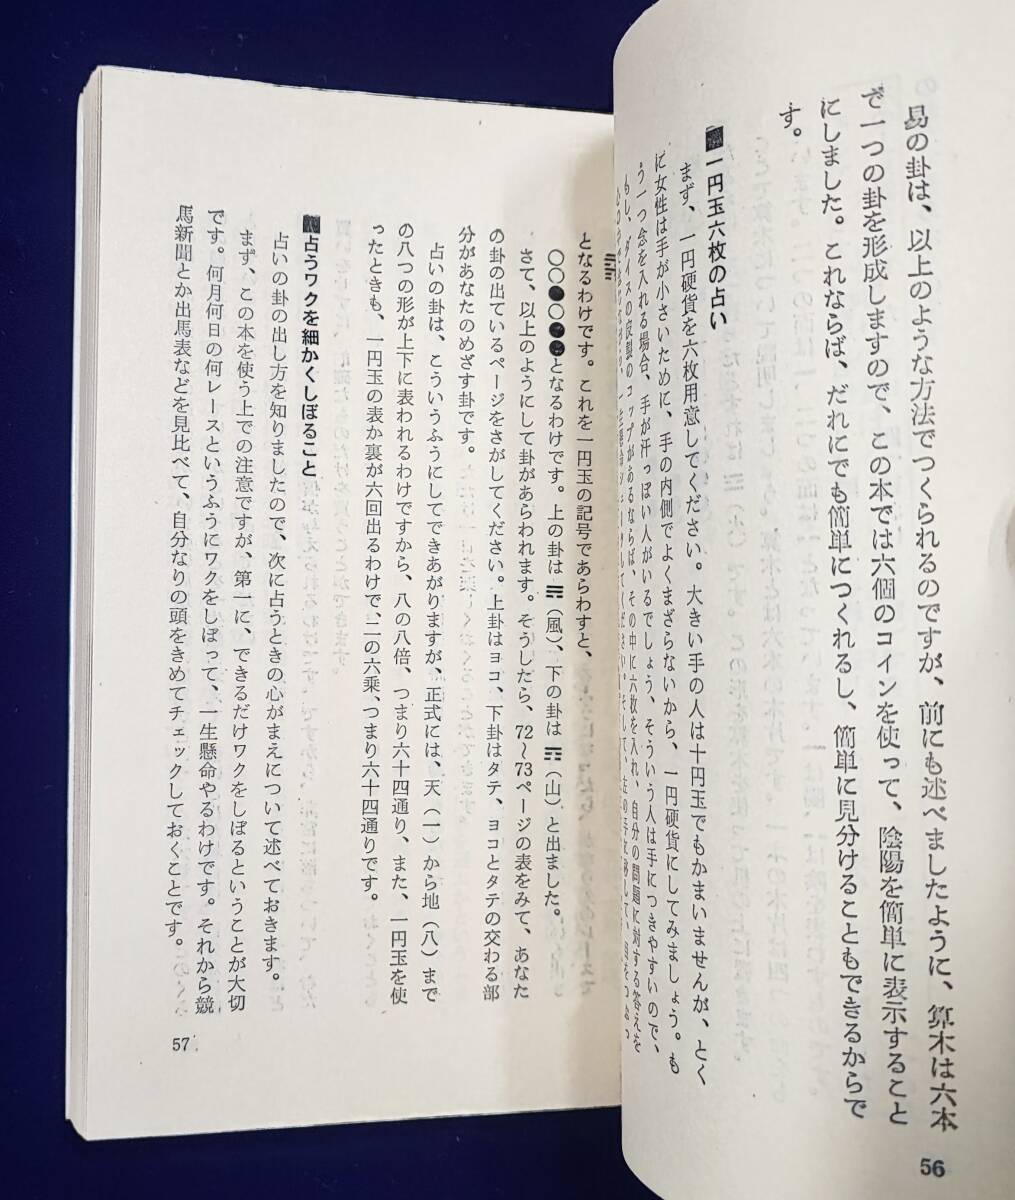 易の卦は、以上のような方法でつくられるのですが、前にも述べましたように、算木は六本
で一つの卦を形成しますので、この本では六個のコインを使って、陰陽を簡単に表示すること
にしました。これならば、だれにでも簡単につくれるし、簡単に見分けることもできるからで
す。
■一円玉六枚の占い
まず、一円硬貨を六枚用意してください。大きい手の人は十円玉でもかまいませんが、とく
に女性は手が小さいために、手の内側でよくまざらないから、一円硬貨にしてみましょう。も
う一つ念を入れる場合、手が汗っぽい人がいるでしょう、そういう人は手につきやすいので、
もし、ダイスの皮製のコップがあるならば、その中に六枚を入れ、自分の問題に対する答えを
56
となるわけです。これを一円玉の記号であらわすと、
○○●○●●となるわけです。上の卦は☴（風）、下の卦は☶（山）と出ました。
さて、以上のようにして卦があらわれます。そうしたら、72〜73ページの表をみて、あなた
の卦の出ているページをさがしてください。上卦はヨコ、下卦はタテ、ヨコとタテの交わる部
分があなたのめざす卦です。
占いの卦は、こういうふうにしてできあがりますが、正式には、天（一）から地（八）まで
の八つの形が上下に表われるわけですから、八の八倍、つまり六十四通り、また、一円玉を使
ったときも、一円玉の表か裏が六回出るわけで、二の六乗、つまり六十四通りです。
■占うワクを細かくしぼること
占いの卦の出し方を知りましたので、次に占うときの心がまえについて述べておきます。
まず、この本を使う上での注意ですが、第一に、できるだけワクをしぼるということが大切
です。何月何日の何レースというふうにワクをしぼって、一生懸命やるわけです。それから競
馬新聞とか出馬表などを見比べて、自分なりの頭をきめてチェックしておくことです。
57